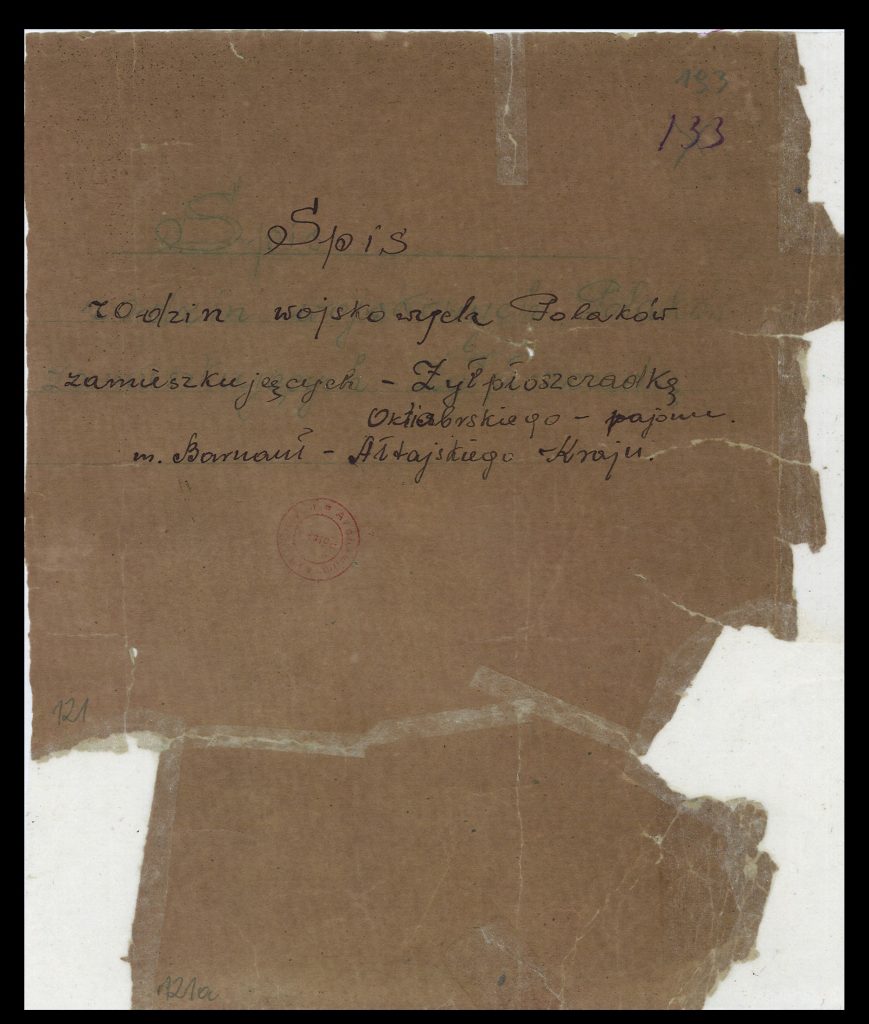 193
133
Spis
rodzin wojskowych Polaków
zamieszkujęcych - Żyłpłoszczadką
Oktiabrskiego - rajonu.
m. Barnauł - Ałtajskiego Kraju.
121
121a